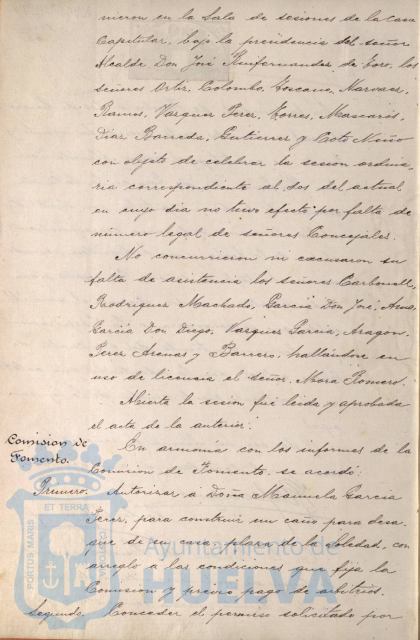 nieron en la Sala de sesiones de la Casa
Capitular, bajo la presidencia del señor
Alcalde Don José Monfernandez de Toro, los
señores Ortiz, Colombo, Toscano, Narvaez,
Ramos, Vazquez Perez, Torres, Mascarós,
Diaz Barreda, Gutierrez y Coto Niño
con objeto de celebrar la sesion ordina-
ria correspondiente al dos del actual
en cuyo dia no tuvo efecto por falta de
número legal de señores Concejales.
No concurrieron ni excusaron su
falta de asistencia los señores Carbonell,
Rodriguez Machado, Garcia Don José,
Garcia Don Diego, Vazquez Garcia, Aragon,
Perez Arenas y Barrero, hallándose en
uso de licencia el señor Mora Romero.
Abierta la sesion fué leida y aprobada
el acta de la anterior.
Comision de
Fomento.
En armonia con los informes de la
Comision de Fomento se acordó:
Primero. Autorizar a Doña Manuela Garcia
Perez, para construir un caño para desa-
que de su casa plaza de la Soledad, con
arreglo a las condiciones que fija la
Comision y previo pago de arbitrios.
Segundo. Conceder el permiso solicitado por
PORTUS MARIS
ET TERRAE
CUSTODIA
Ayuntamiento de
HUELVA